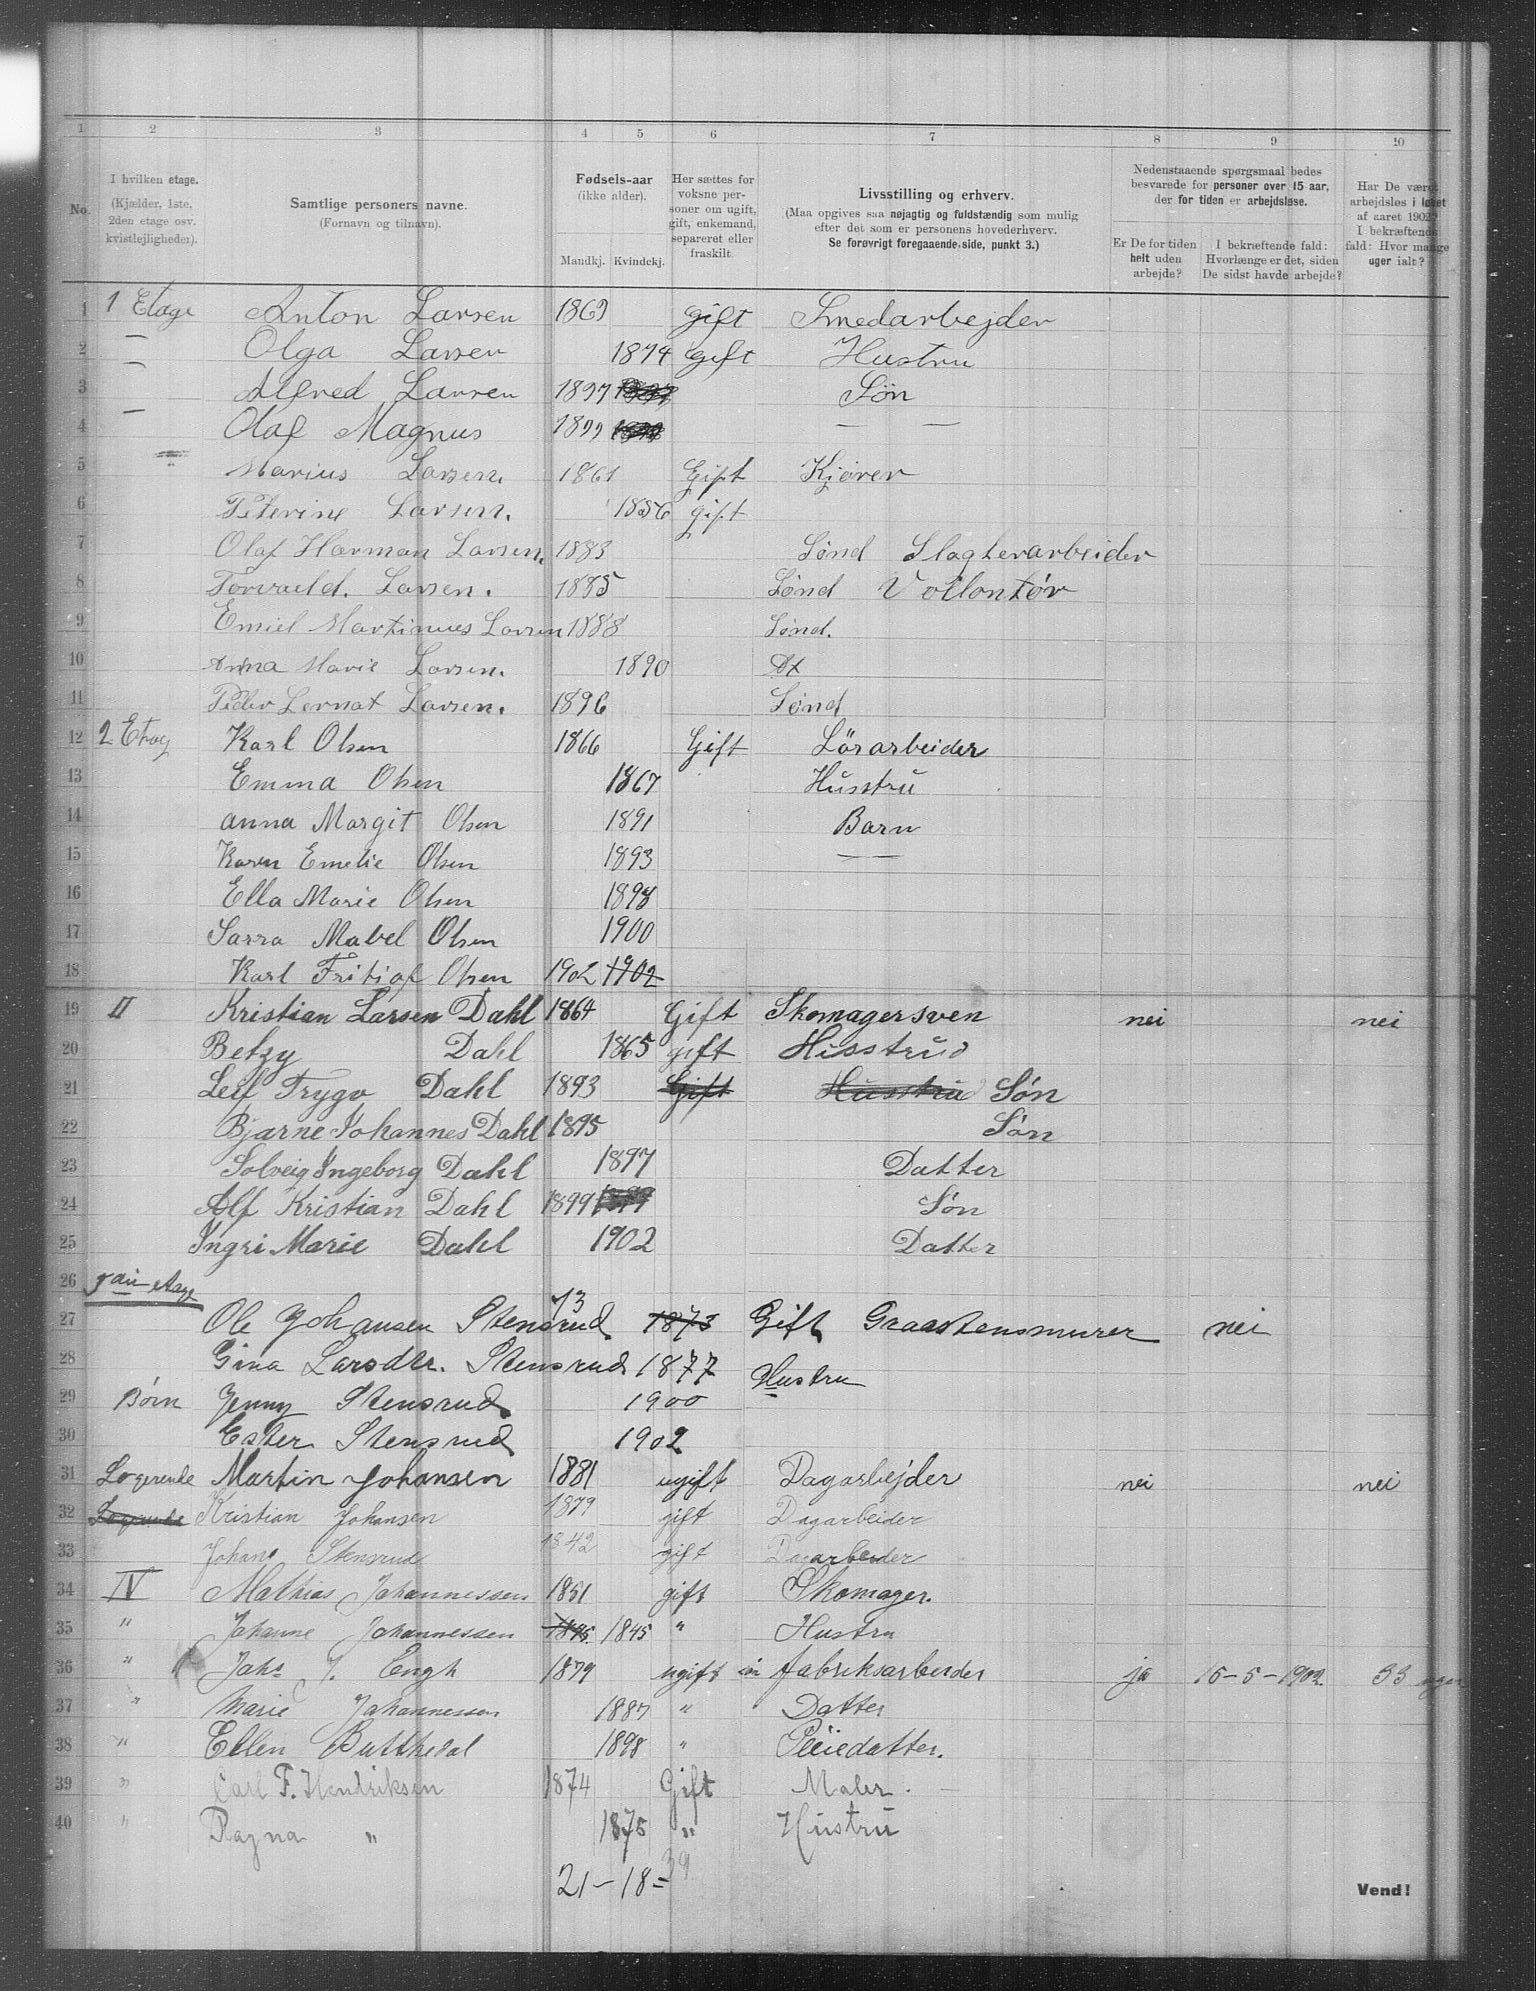 1 2 3 4 5 6 7 8 9 10
No.
I hvilken etage. (Kjælder, 1ste, 2den etage osv. kvistlejligheder).
Samtlige personers navne. (Fornavn og tilnavn).
Fødsels-aar (ikke alder). Mandkj. Kvindekj.
Her sættes for voksne personer om ugift, gift, enkemand, separeret eller fraskilt.
Livsstilling og erhverv. (Maa opgives saa nøjagtig og fuldstændig som mulig efter det som er personens hovederhverv. Se forøvrigt foregaaende side, punkt 3.)
Nedenstaaende spørgsmaal bedes besvarede for personer over 15 aar, der for tiden er arbejdsløse.
Er De for tiden helt uden arbejde?
I bekræftende fald: Hvorlænge er det, siden De sidst havde arbejde?
Har De været arbejdsløs i løbet af aaret 1902? I bekræftende fald: Hvor mange uger ialt?
1 1 Etage Anton Larsen 1869 gift Smedarbejder
2 — Olga Larsen 1874 gift Hustru
3 — Alfred Larsen 1897 1897 Søn
4 — Olaf Magnus 1899 1899 — —
5 Marius Larsen. 1861 Gift Kjører
6 Peterine Larsen. 1856 gift
7 Olaf Harman Larsen. 1883 Sønd Slagterarbeider
8 Torvaeld. Larsen. 1885 Sønd Vollontør
9 Emiel Martinues Larsen 1888 Sønd.
10 Anna Marie Larsen. 1890 Dt
11 Peder Lernat Larsen. 1896 Sønd
12 2 Etag Karl Olsen 1866 Gift Lörarbeider
13 Emma Olsen 1867 Husstru
14 anna Margit Olsen 1891 Barn
15 Karen Emelie Olsen 1893 —
16 Ella Marie Olsen 1898
17 Sarra Mabel Olsen 1900
18 Karl Fritiof Olsen 1902 1902
19 II Kristian Larsen Dahl 1864 Gift Skomagersven nei nei
20 Betzy Dahl 1865 gift Hisstrud
21 Leif Trygv Dahl 1893 Gift Husstrud Søn
22 Bjarne Johannes Dahl 1895 Søn
23 Solveig Ingeborg Dahl 1897 Datter
24 Alf Kristian Dahl 1899 1899 Søn
25 Ingri Marie Dahl 1902 Datter
26 3die etage
27 Ole Johansen Stensrud 73 1873 Gift Graastensmurer nei
28 Gina Larsdtr. Stensrud 1877 Hustru
29 Börn Jenny Stensrud 1900
30 Ester Stensrud 1902
31 Logerende Martin Johansen 1881 ugift Dagarbejder nei nei
32 Logerende Kristian Johansen 1879 gift Dagarbeider
33 Johans Stensrud 1842 gift Dagarbeider
34 IV Mathias Johannessen 1851 gift Skomager.
35 " Johanne Johannessen 1845 1845 " Hustru
36 " Johs J. Engh 1879 ugift fabriksarbeider ja 15-5-1902 33 uger
37 " Marie Johannessen 1887 " Datter
38 " Ellen Butthedal 1898 " Pleiedatter.
39 " Carl F. Hendriksen 1874 Gift Maler. —
40 " Ragna " 1875 " Hustru
21 – 18 = 39
Vend!